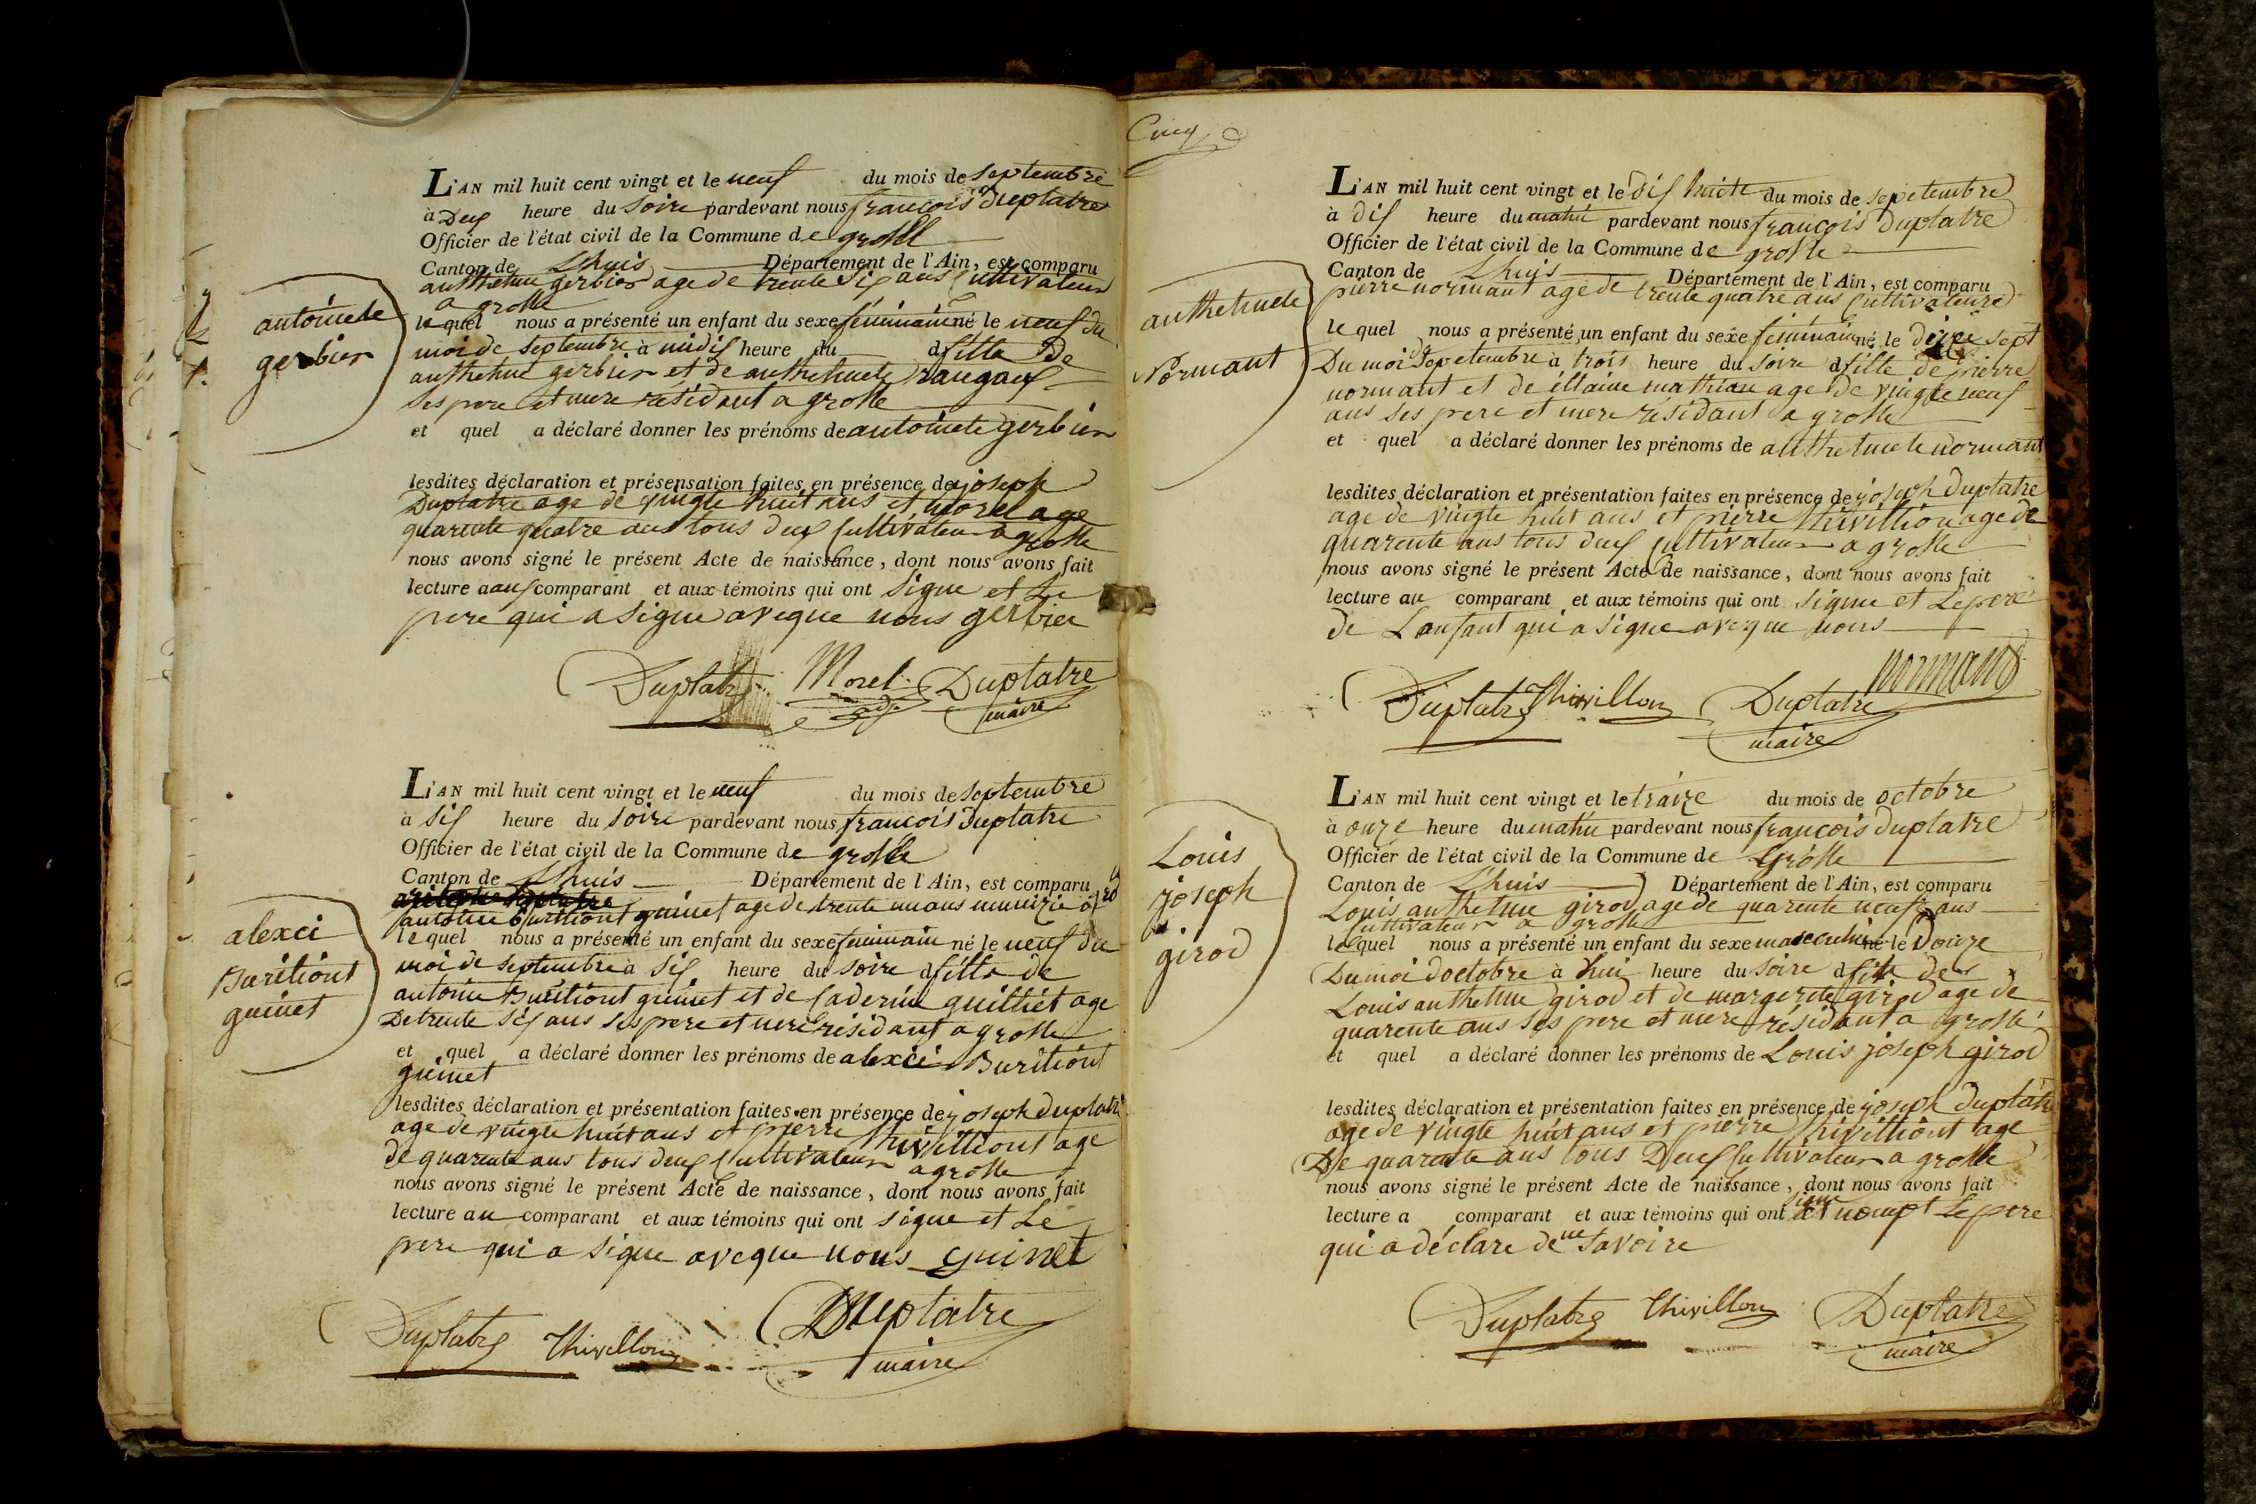 antoinete
gerbier
L'AN mil huit cent vingt et le neuf du mois de septembre
à Deux heure du soire pardevant nous françois duplatre
Officier de l'état civil de la Commune de grosle
Canton de Lhuis Département de l'Ain, est comparu
anthelme gerbier age de trente six ans Cultivateur
a grosle
le quel nous a présenté un enfant du sexe féminain né le neuf du
moi de septembre à midis heure du d fille De
anthelme gerbier et de anthelmete
ses pere et mere résidant a grosle
et quel a déclaré donner les prénoms de antoinete gerbier
lesdites déclaration et présensation faites en présence de joseph
Duplatre age de vingte huit ans et morel age
quarente quatre ans tous deux Cultivateur a grosle
nous avons signé le présent Acte de naissance, dont nous avons fait
lecture a aux comparant et aux témoins qui ont signe et Le
pere qui a signe aveque nous gerbier
Duplatre Morel Duplatre
maire
alexci
Buritiont
guinet
L'AN mil huit cent vingt et le neuf du mois de septembre
à six heure du soire pardevant nous françois Duplatre
Officier de l'état civil de la Commune de grosle
Canton de Lhuis Département de l'Ain, est comparu
antoine Buritiont guinet age de trente un ans
le quel nous a présenté un enfant du sexe feminain né le neuf du
moi de septembre à six heure du soire d fille de
antoine Buritiont guinet et de Caderine guilliet age
De trente six ans ses pere et mere résidant a grosle
et quel a déclaré donner les prénoms de alexci Buritiont
guinet
lesdites déclaration et présentation faites en présence de joseph duplatre
age de vingte huit ans et pierre thivilliont age
de quarente ans tous deux Cultivateur a grosle
nous avons signé le présent Acte de naissance, dont nous avons fait
lecture au comparant et aux témoins qui ont signe et Le
pere qui a signe aveque nous guinet
Duplatre Thivillon Duplatre
maire
Cinq
anthelmete
Normant
L'AN mil huit cent vingt et le dix huite du mois de sepetembre
à dix heure du matin pardevant nous françois Duplatre
Officier de l'état civil de la Commune de grosle
Canton de Lhuis Département de l'Ain, est comparu
pierre normant age de trente quatre ans Cultivateure
le quel nous a présenté un enfant du sexe féminain né le dixe sept
Du moi De sepetembre à trois heure du soire d fille de pierre
normant et de éllaine mathian age De vingte neuf
ans ses pere et mere résidant a grosle
et quel a déclaré donner les prénoms de anthelmete normant
lesdites déclaration et présentation faites en présence de joseph Duplatre
age de vingte huit ans et pierre thivillion age de
quarente ans tous deux Cultivateur a grosle
nous avons signé le présent Acte de naissance, dont nous avons fait
lecture au comparant et aux témoins qui ont signe et Le pere
de L'anfant qui a signe aveque nous
normand
Duplatre Thivillon Duplatre
maire
Louis
joseph
girod
L'AN mil huit cent vingt et le traize du mois de octobre
à onze heure du matin pardevant nous françois duplatre
Officier de l'état civil de la Commune de Grosle
Canton de Lhuis Département de l'Ain, est comparu
Louis anthelme girod age de quarente neuf ans
Cultivateur a grosle
le quel nous a présenté un enfant du sexe masculin né le Douze
Du moi doctobre à hui heure du soire d fils de
Louis anthelme girod et de margerite girod age de
quarente ans ses pere et mere résidant a grosle
et quel a déclaré donner les prénoms de Louis joseph girod
lesdites déclaration et présentation faites en présence de joseph duplatre
age de vingte huit ans et pierre thivilliont age
De quarente ans tous Deux Cultivateur a grosle
nous avons signé le présent Acte de naissance, dont nous avons fait
lecture a comparant et aux témoins qui ont signe et nompt Le pere
qui a déclare de ne savoire
Duplatre Thivillon Duplatre
maire